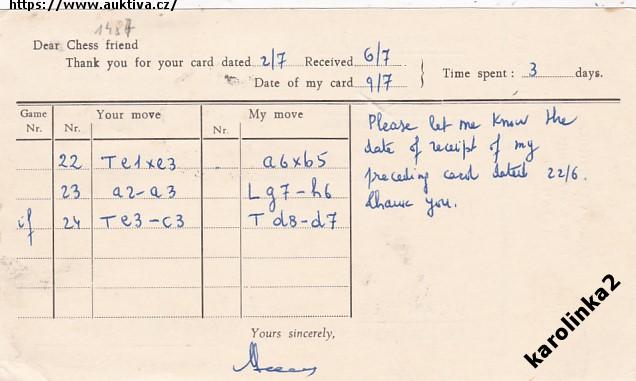 https://www.auktiva.cz/
Dear Chess friend
Thank you for your card dated 2/7 Received 6/7
Date of my card 9/7
Time spent: 3 days.
Game Nr. Nr. Your move Nr. My move
22 Te1xe3 a6xb5
23 a2-a3 Lg7-h6
if 24 Te3-c3 Td8-d7
Please let me know the
date of receipt of my
preceding card dated 22/6.
Thank you.
Yours sincerely,
karolinka2